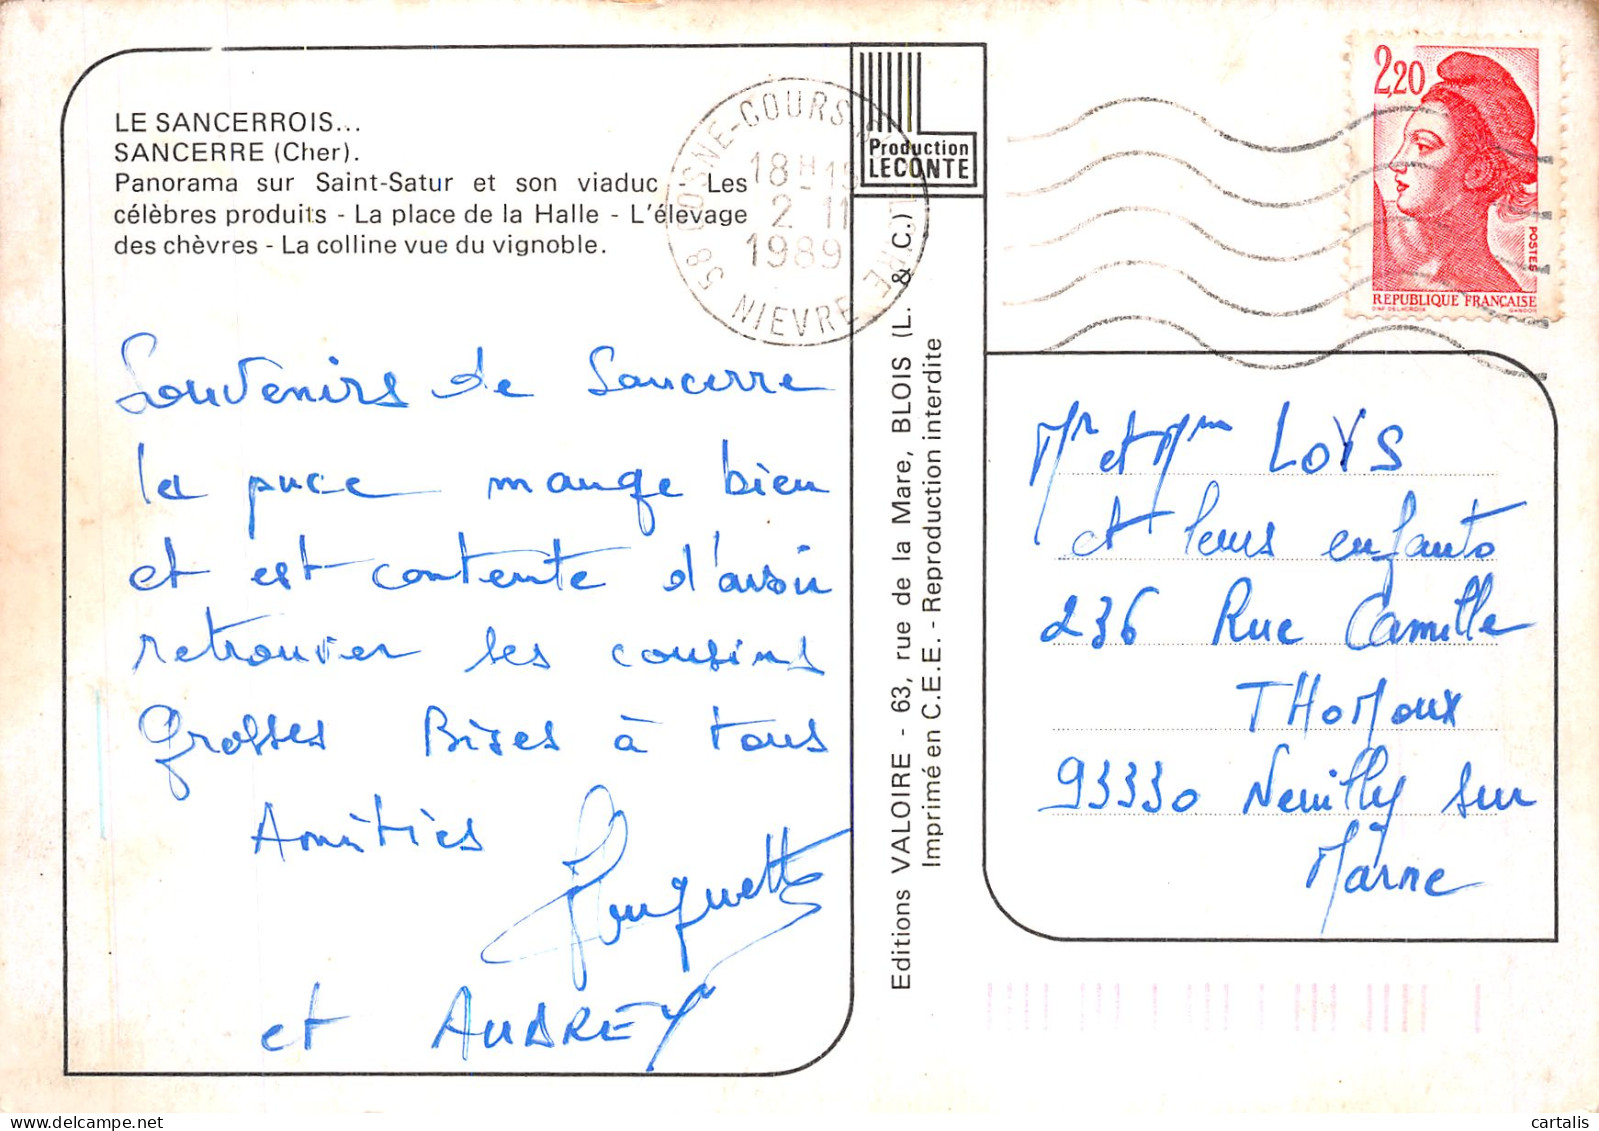 LE SANCERROIS...
SANCERRE (Cher).
Panorama sur Saint-Satur et son viaduc - Les
célèbres produits - La place de la Halle - L'élevage
des chèvres - La colline vue du vignoble.
Souvenirs de Sancerre
la puce mange bien
et est contente d'avoir
retrouver ses cousins
Grosses Bises à tous
Amitiés
Huguette
et AUDREY
58 COSNE-COURS-SUR-LOIRE
18H-15
2-11
1989
NIEVRE
Production
LECONTE
Editions VALOIRE - 63, rue de la Mare, BLOIS (L. & C.)
Imprimé en C.E.E. - Reproduction interdite
2,20
POSTES
REPUBLIQUE FRANÇAISE
D'AP. DELACROIX GANDON
Mr et Mme LOYS
et leurs enfants
236 Rue Camille
THOMOUX
93330 Neuilly sur
Marne
cartalis